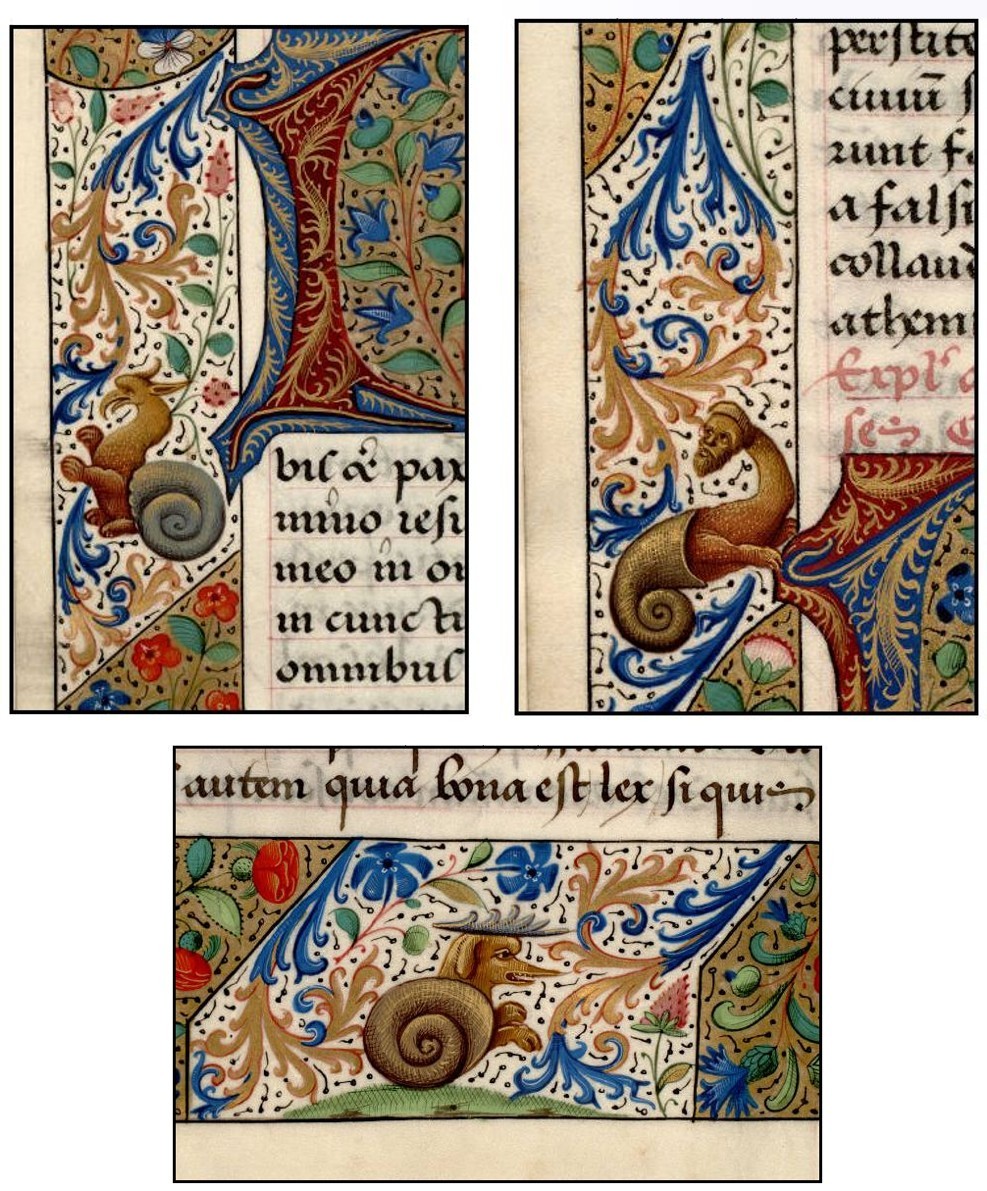 bil & pax
mino iesu
meo in or
in cunctı
omnibus
perſtite
ciuiū ſ
runt fa
a falſi
collaud
athem
Expl a
autem quia bona eſt lex ſi quis